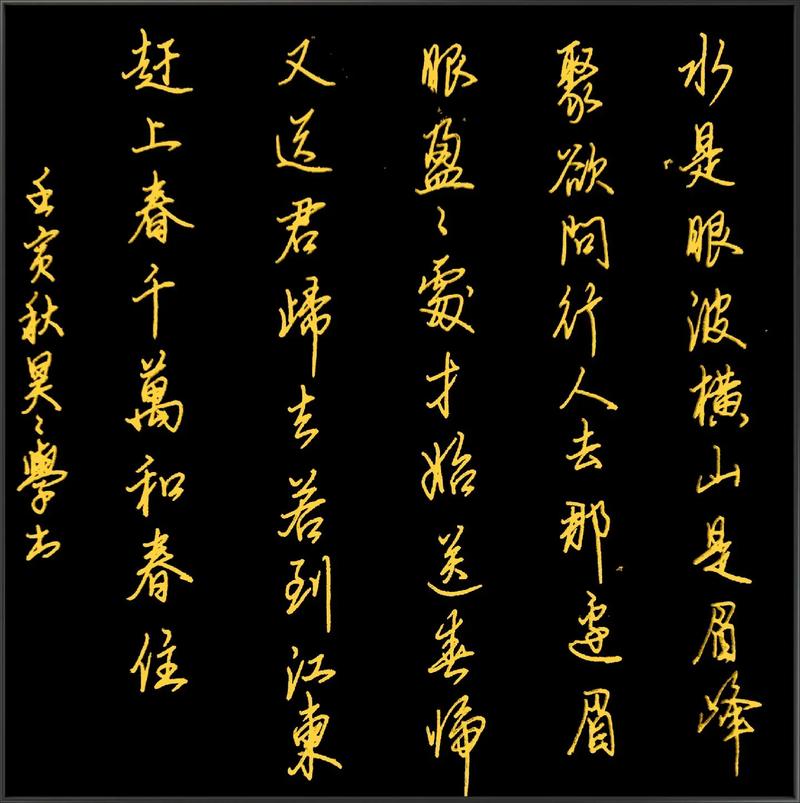 水是眼波横山是眉峰
聚欲問行人去那邊眉
眼盈〻處才始送春帰
又送君歸去若到江東
赶上春千萬和春住
壬寅秋昊〻學书